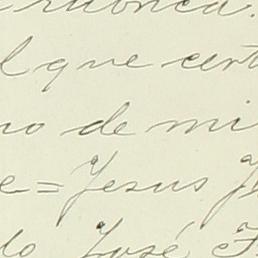 rubrica.
l que cert
no de mi
e = Jesus J
do José F